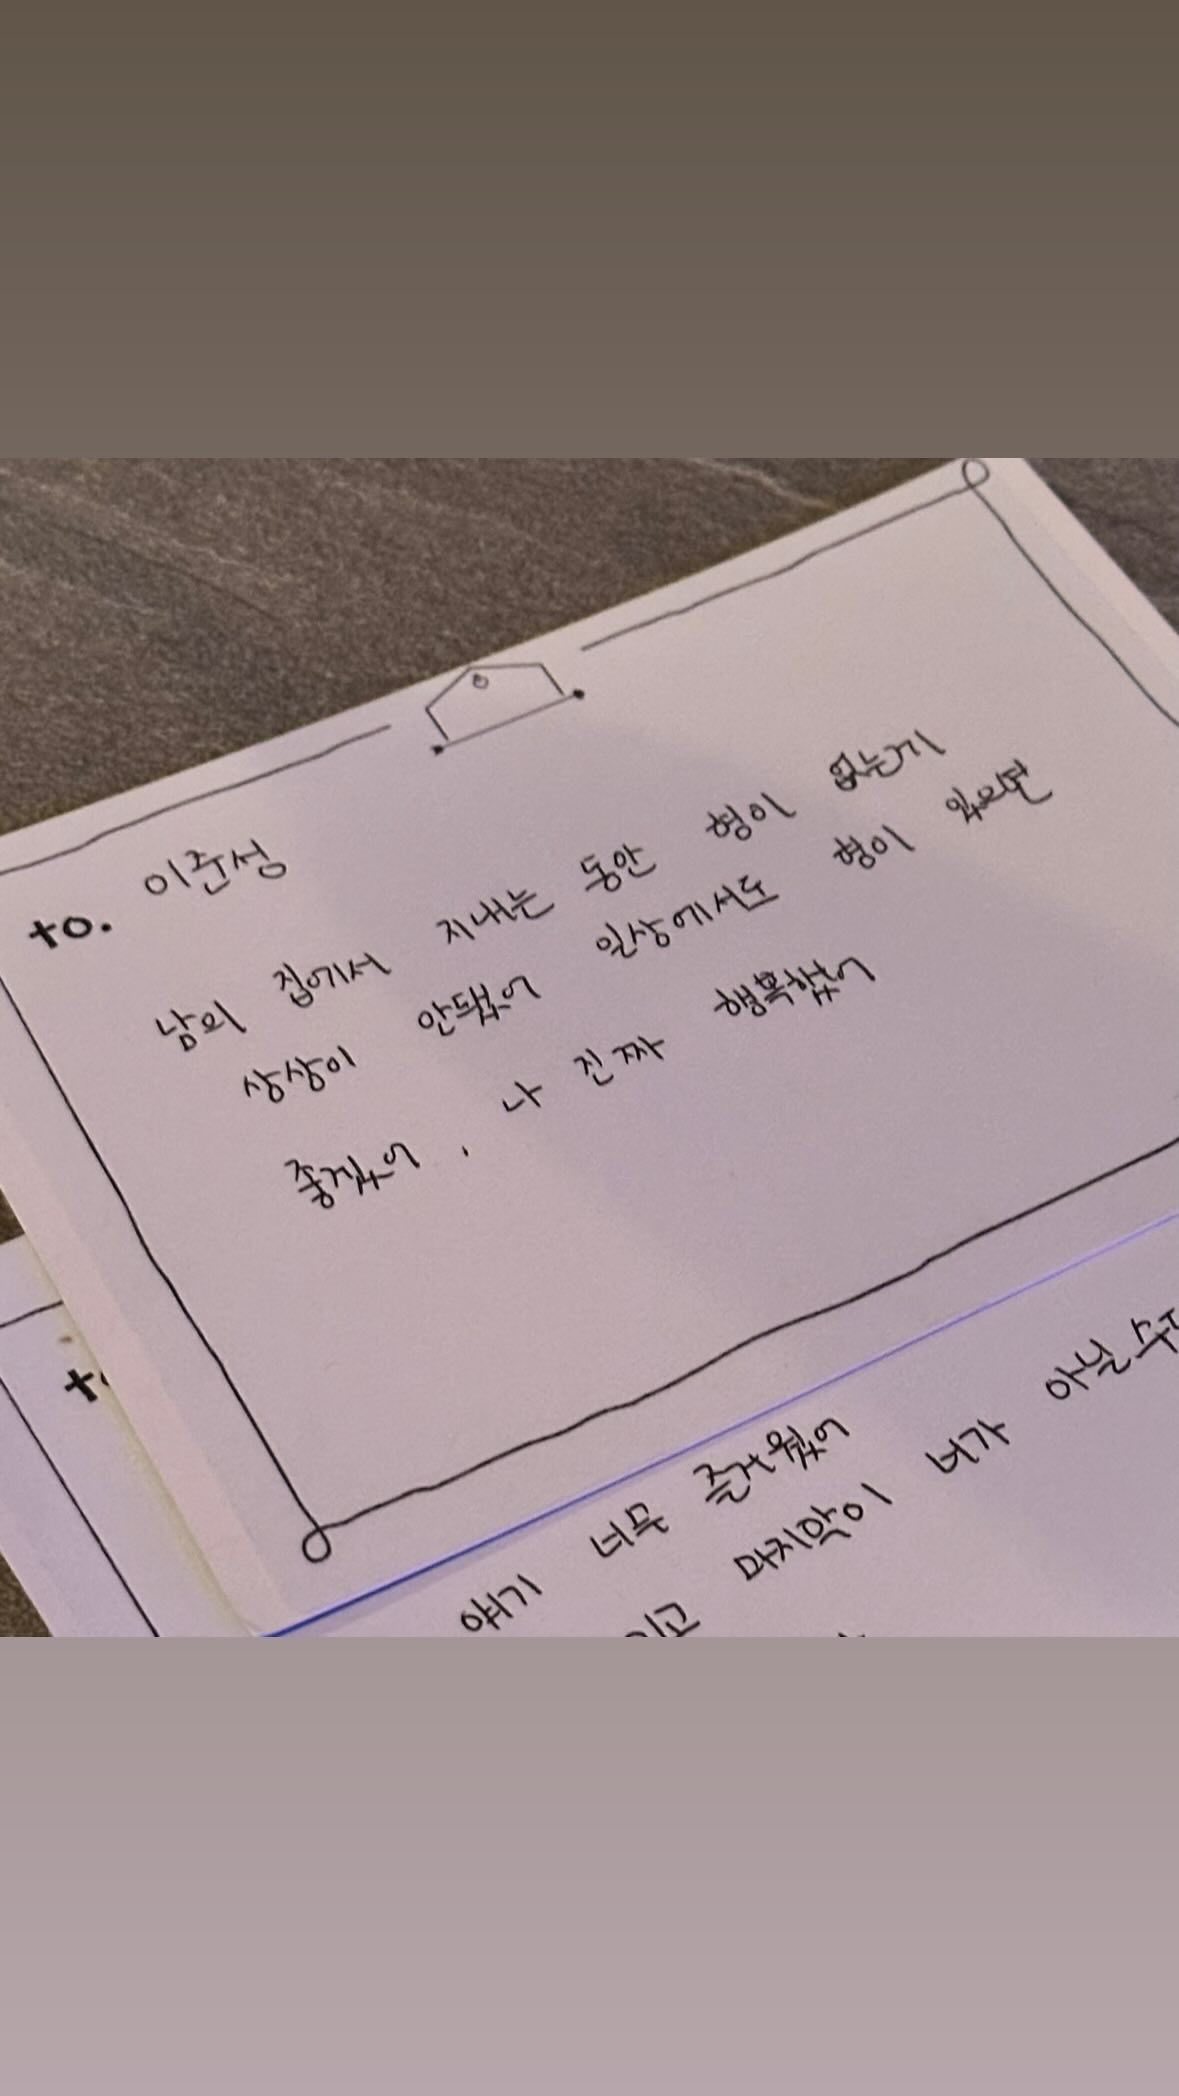 to. 이준성
남의 집에서 지내는 동안 형이 없는게
상상이 안됐어 일상에서도 형이 있으면
좋겠어, 나 진짜 행복했어
to
얘기 너무 즐거웠어
마지막이 너가 아닐수도